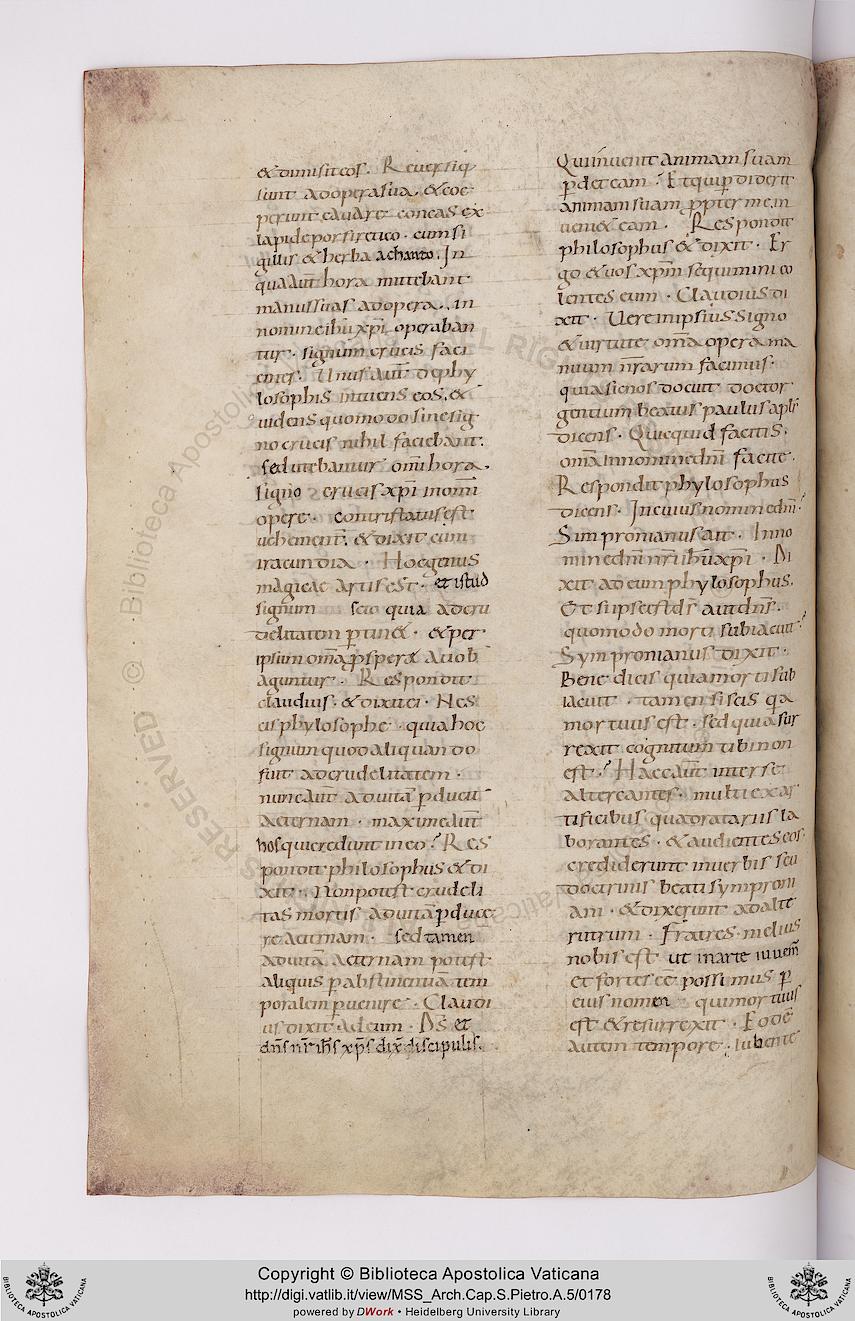 & dimisit eos. Reuersiq;
sunt ad opera sua. & coe
perunt cauare concas ex
lapide porfiretico. cum si
gillis & herba achanto. In
qua aut̄ hora mittebant
manus suas ad opera. in
nomine ihū xp̄i operaban
tur. signum crucis faci
entes. Unus aut̄ de phy
losophis intuens eos. &
uidens quomodo sine sig
no crucis nihil faciebant.
sed utebantur om̄i hora.
signo crucis xp̄i in om̄i
opere. contristatus est
uehement̄. & dixit cum
iracundia. Hoc genus
magicae artis est. et istud
signum scio quia ad cru
delitatem ꝑtin&. & per
ipsum om̄a ꝓspera a uob
aguntur. Respondit
claudius. & dixit ei. Nes
cis phylosophe. quia hoc
signum quod aliquando
fuit ad crudelitatem.
nunc aut̄ ad uitā ꝑducit
aeternam. maxime aut̄
hos qui credunt in eo? Res
pondit philosophus & di
xit. Non potest crudeli
tas mortis ad uitā ꝑduce
re aeternam. sed tamen
ad uitā aeternam potest
aliquis ꝑ abstinentiā tem
poralem ꝑuenire. Claudi
us dixit ad eum. Dꝰs et
dn̄s nr̄ ihs̄ xp̄s dix̄ discipulis.
Qui inuenit animam suam
ꝑdet eam. Et qui ꝑdiderit
animam suam ꝓpter me. in
ueni& eam. Respondit
philosophus & dixit. Er
go & uos xp̄m sequimini co
lentes eum. Claudius di
xit. Uere in ipsius signo
& uirtute om̄a opera ma
nuum nr̄arum facimus.
quia sic nos docuit doctor
gentium beatus paulus apl̄s
dicens. Quicquid facitis.
om̄a In nomine dn̄i facite.
Respondit phylosophus
dicens. In cuius nomine dn̄i?
Simpronianus ait. In no
mine dn̄i nr̄i ihū xp̄i. Di
xit ad eum phylosophus.
Et si ipse est ds̄ aut dn̄s.
quomodo morti subiacuit?
Sympronianus dixit.
Bene dicis quia morti sub
iacuit. tamen si scis qa
mortuus est. sed quia sur
rexit cognitum tibi non
est? Haec aut̄ inter se
altercantes. multi ex ar
tificibus quadratariis la
borantes. & audientes eos.
crediderunt in uerbis seu
doctrinis beati symproni
ani. & dixerunt ad alte
rutrum. Fratres. melius
nobis est ut in arte iuuem̄
et fortes eē possimus ꝑ
eius nomen qui mortuus
est & resurrexit. Eodē
autem tempore. iubente
Copyright © Biblioteca Apostolica Vaticana
http://digi.vatlib.it/view/MSS_Arch.Cap.S.Pietro.A.5/0178
powered by DWork • Heidelberg University Library